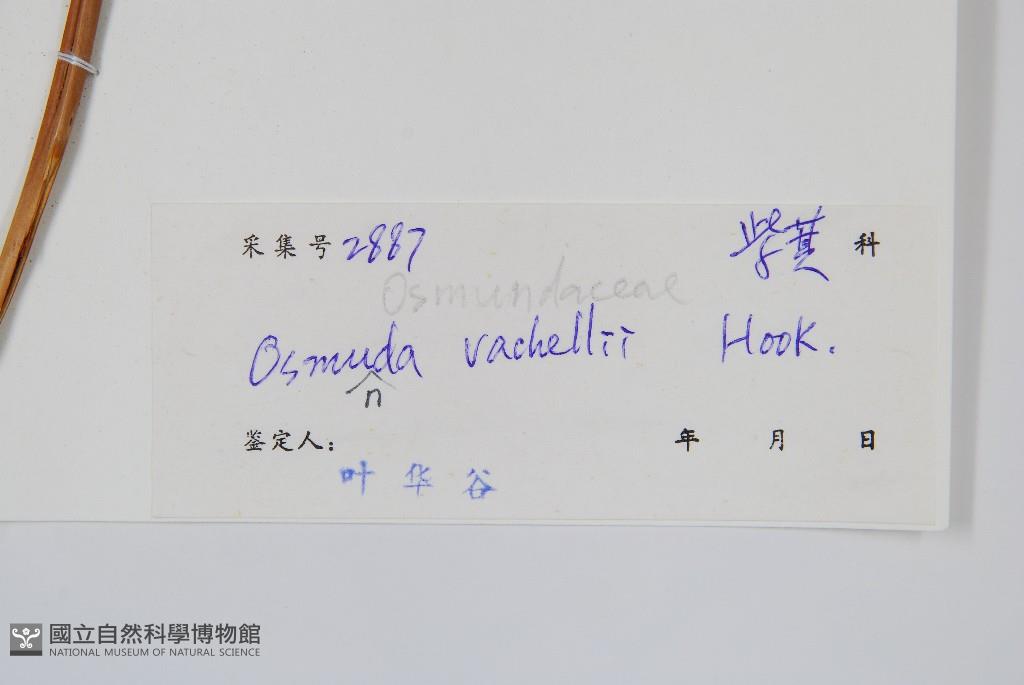 采集号 2887 紫萁 科
Osmundaceae
Osmuda vachellii Hook.
n
鉴定人： 年 月 日
叶华谷
國立自然科學博物館
NATIONAL MUSEUM OF NATURAL SCIENCE